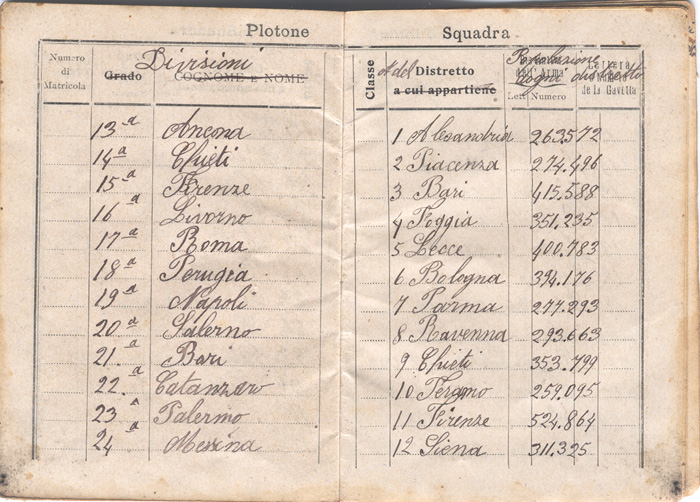 Plotone
Numero di Matricola
Divisioni
Grado COGNOME e NOME
13ª Ancona
14ª Chieti
15ª Firenze
16ª Livorno
17ª Roma
18ª Perugia
19ª Napoli
20ª Salerno
21ª Bari
22ª Catanzaro
23ª Palermo
24ª Messina
Squadra
Classe
N del Distretto
a cui appartiene
Popolazione
dell'Arma
d'ogni distretto
Lett. Numero
Lettera
de la Gavetta
1 Alessandria 263572
2 Piacenza 274.496
3 Bari 415.588
4 Foggia 351.235
5 Lecce 400.783
6 Bologna 394.176
7 Parma 277.293
8 Ravenna 293.663
9 Chieti 353.799
10 Teramo 259.095
11 Firenze 524.864
12 Siena 311.325